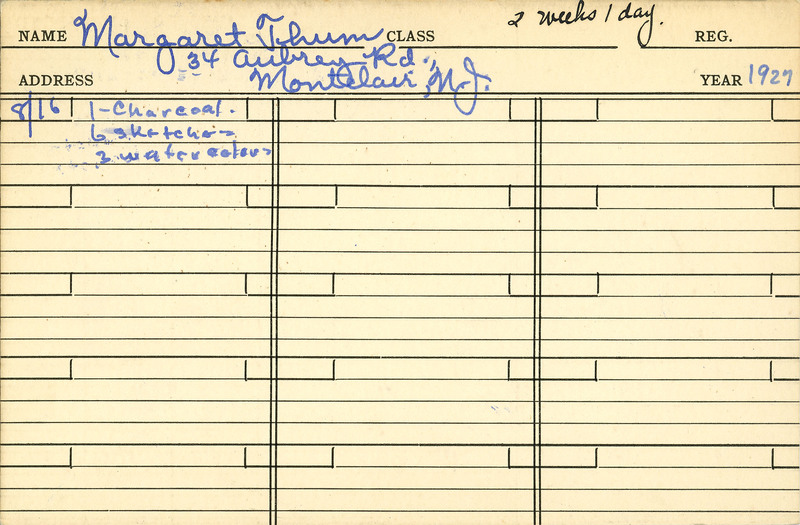 2 weeks 1 day.
NAME Margaret Thum CLASS REG.
34 Aubrey Rd.,
ADDRESS Montclair, N.J. YEAR 1927
8/16 1-Charcoal.
6 sketches
3 watercolors